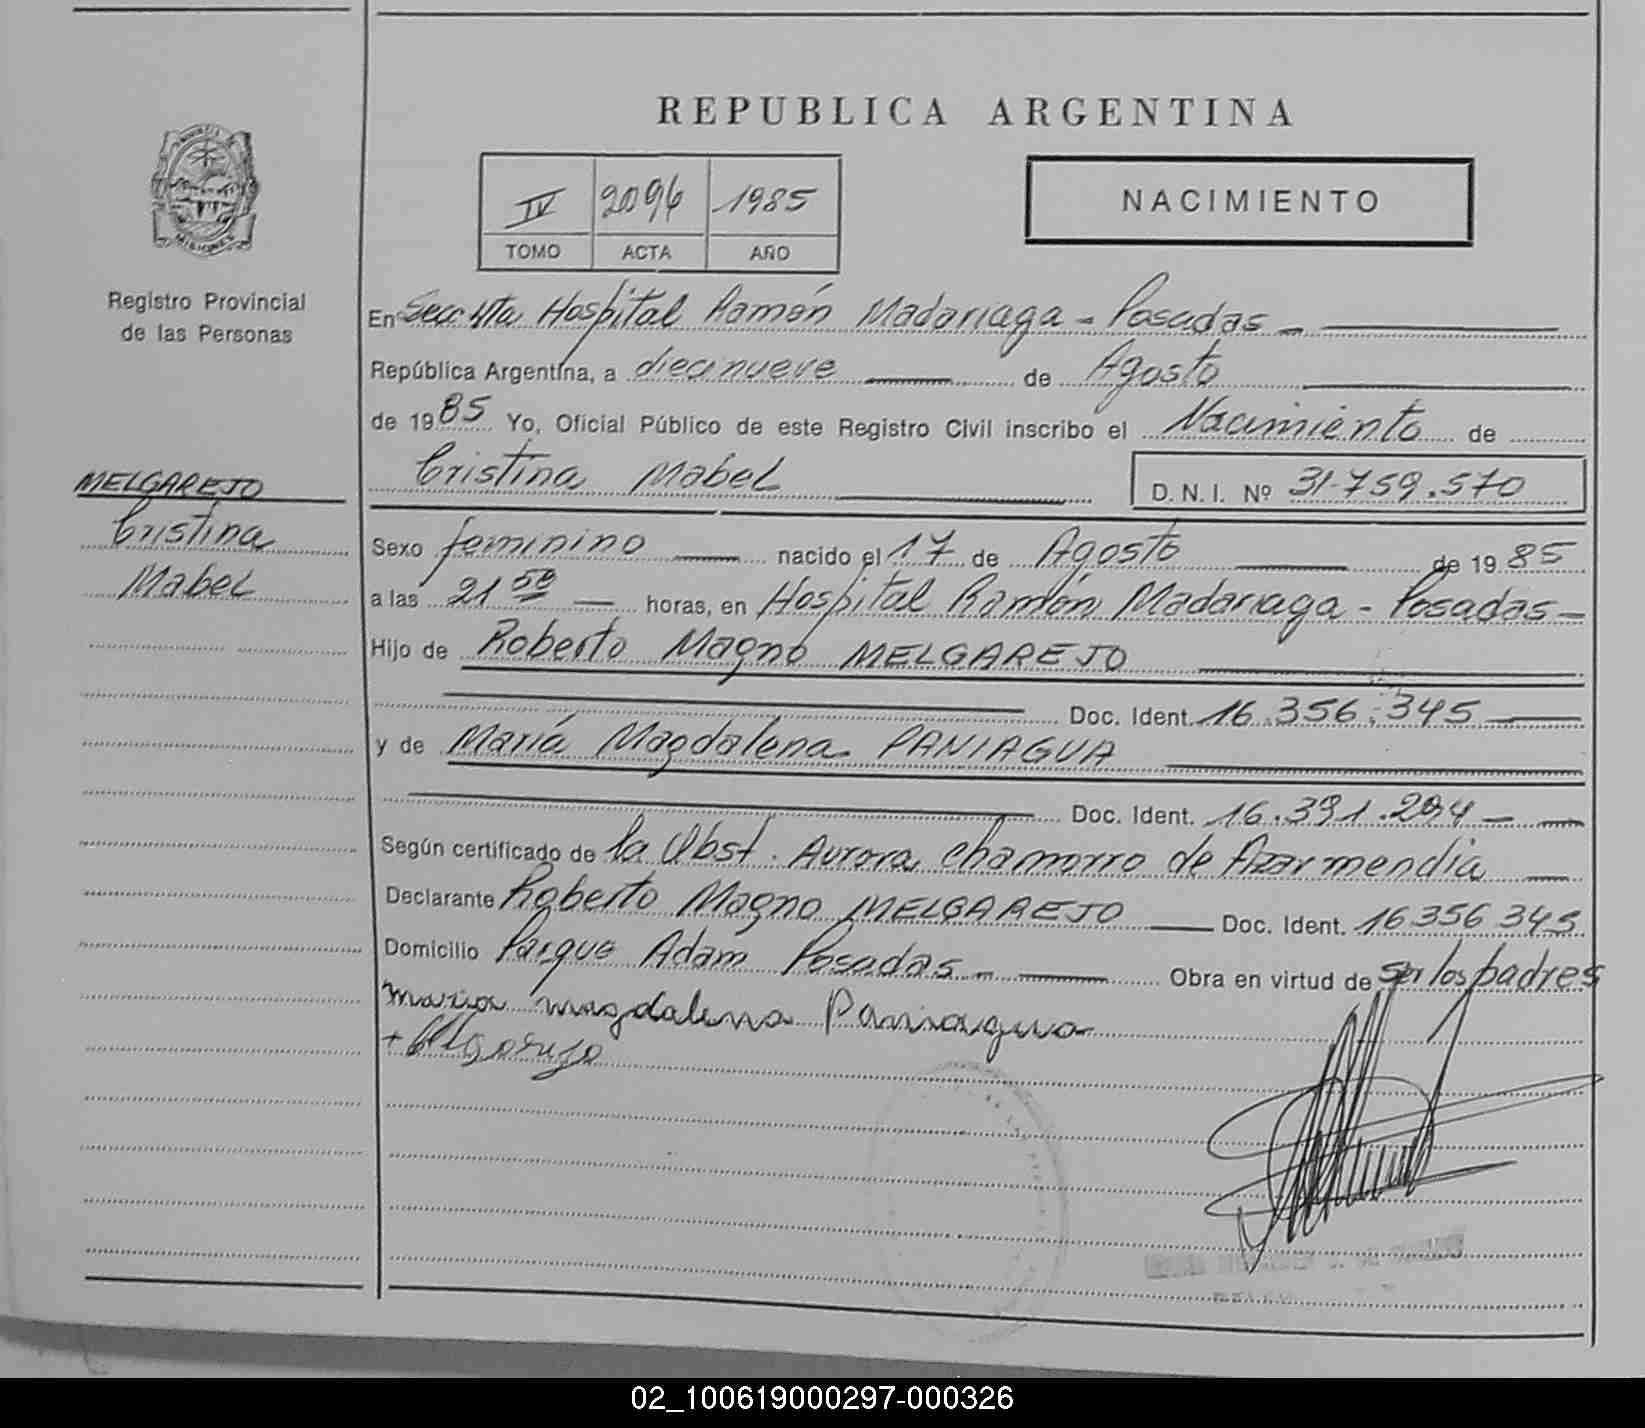 REPUBLICA ARGENTINA
IV 2096 1985
TOMO ACTA AÑO
NACIMIENTO
MISIONES
Registro Provincial
de las Personas
MELGAREJO
Cristina
Mabel
En Secc 4ta Hospital Ramón Madariaga - Posadas -
República Argentina, a diecinueve de Agosto
de 1985 Yo, Oficial Público de este Registro Civil inscribo el Nacimiento de
Cristina Mabel D.N.I. Nº 31.759.570
Sexo feminino nacido el 17 de Agosto de 1985
a las 21 50 horas, en Hospital Ramón Madariaga - Posadas -
Hijo de Roberto Magno MELGAREJO
Doc. Ident. 16.356.345
y de María Magdalena PANIAGUA
Doc. Ident. 16.391.294
Según certificado de la Obst. Aurora Chamorro de Azarmendia
Declarante Roberto Magno MELGAREJO Doc. Ident. 16356345
Domicilio Parque Adam Posadas - Obra en virtud de ser los padres
maria magdalena Paniagua
+ Melgarejo
02_100619000297-000326